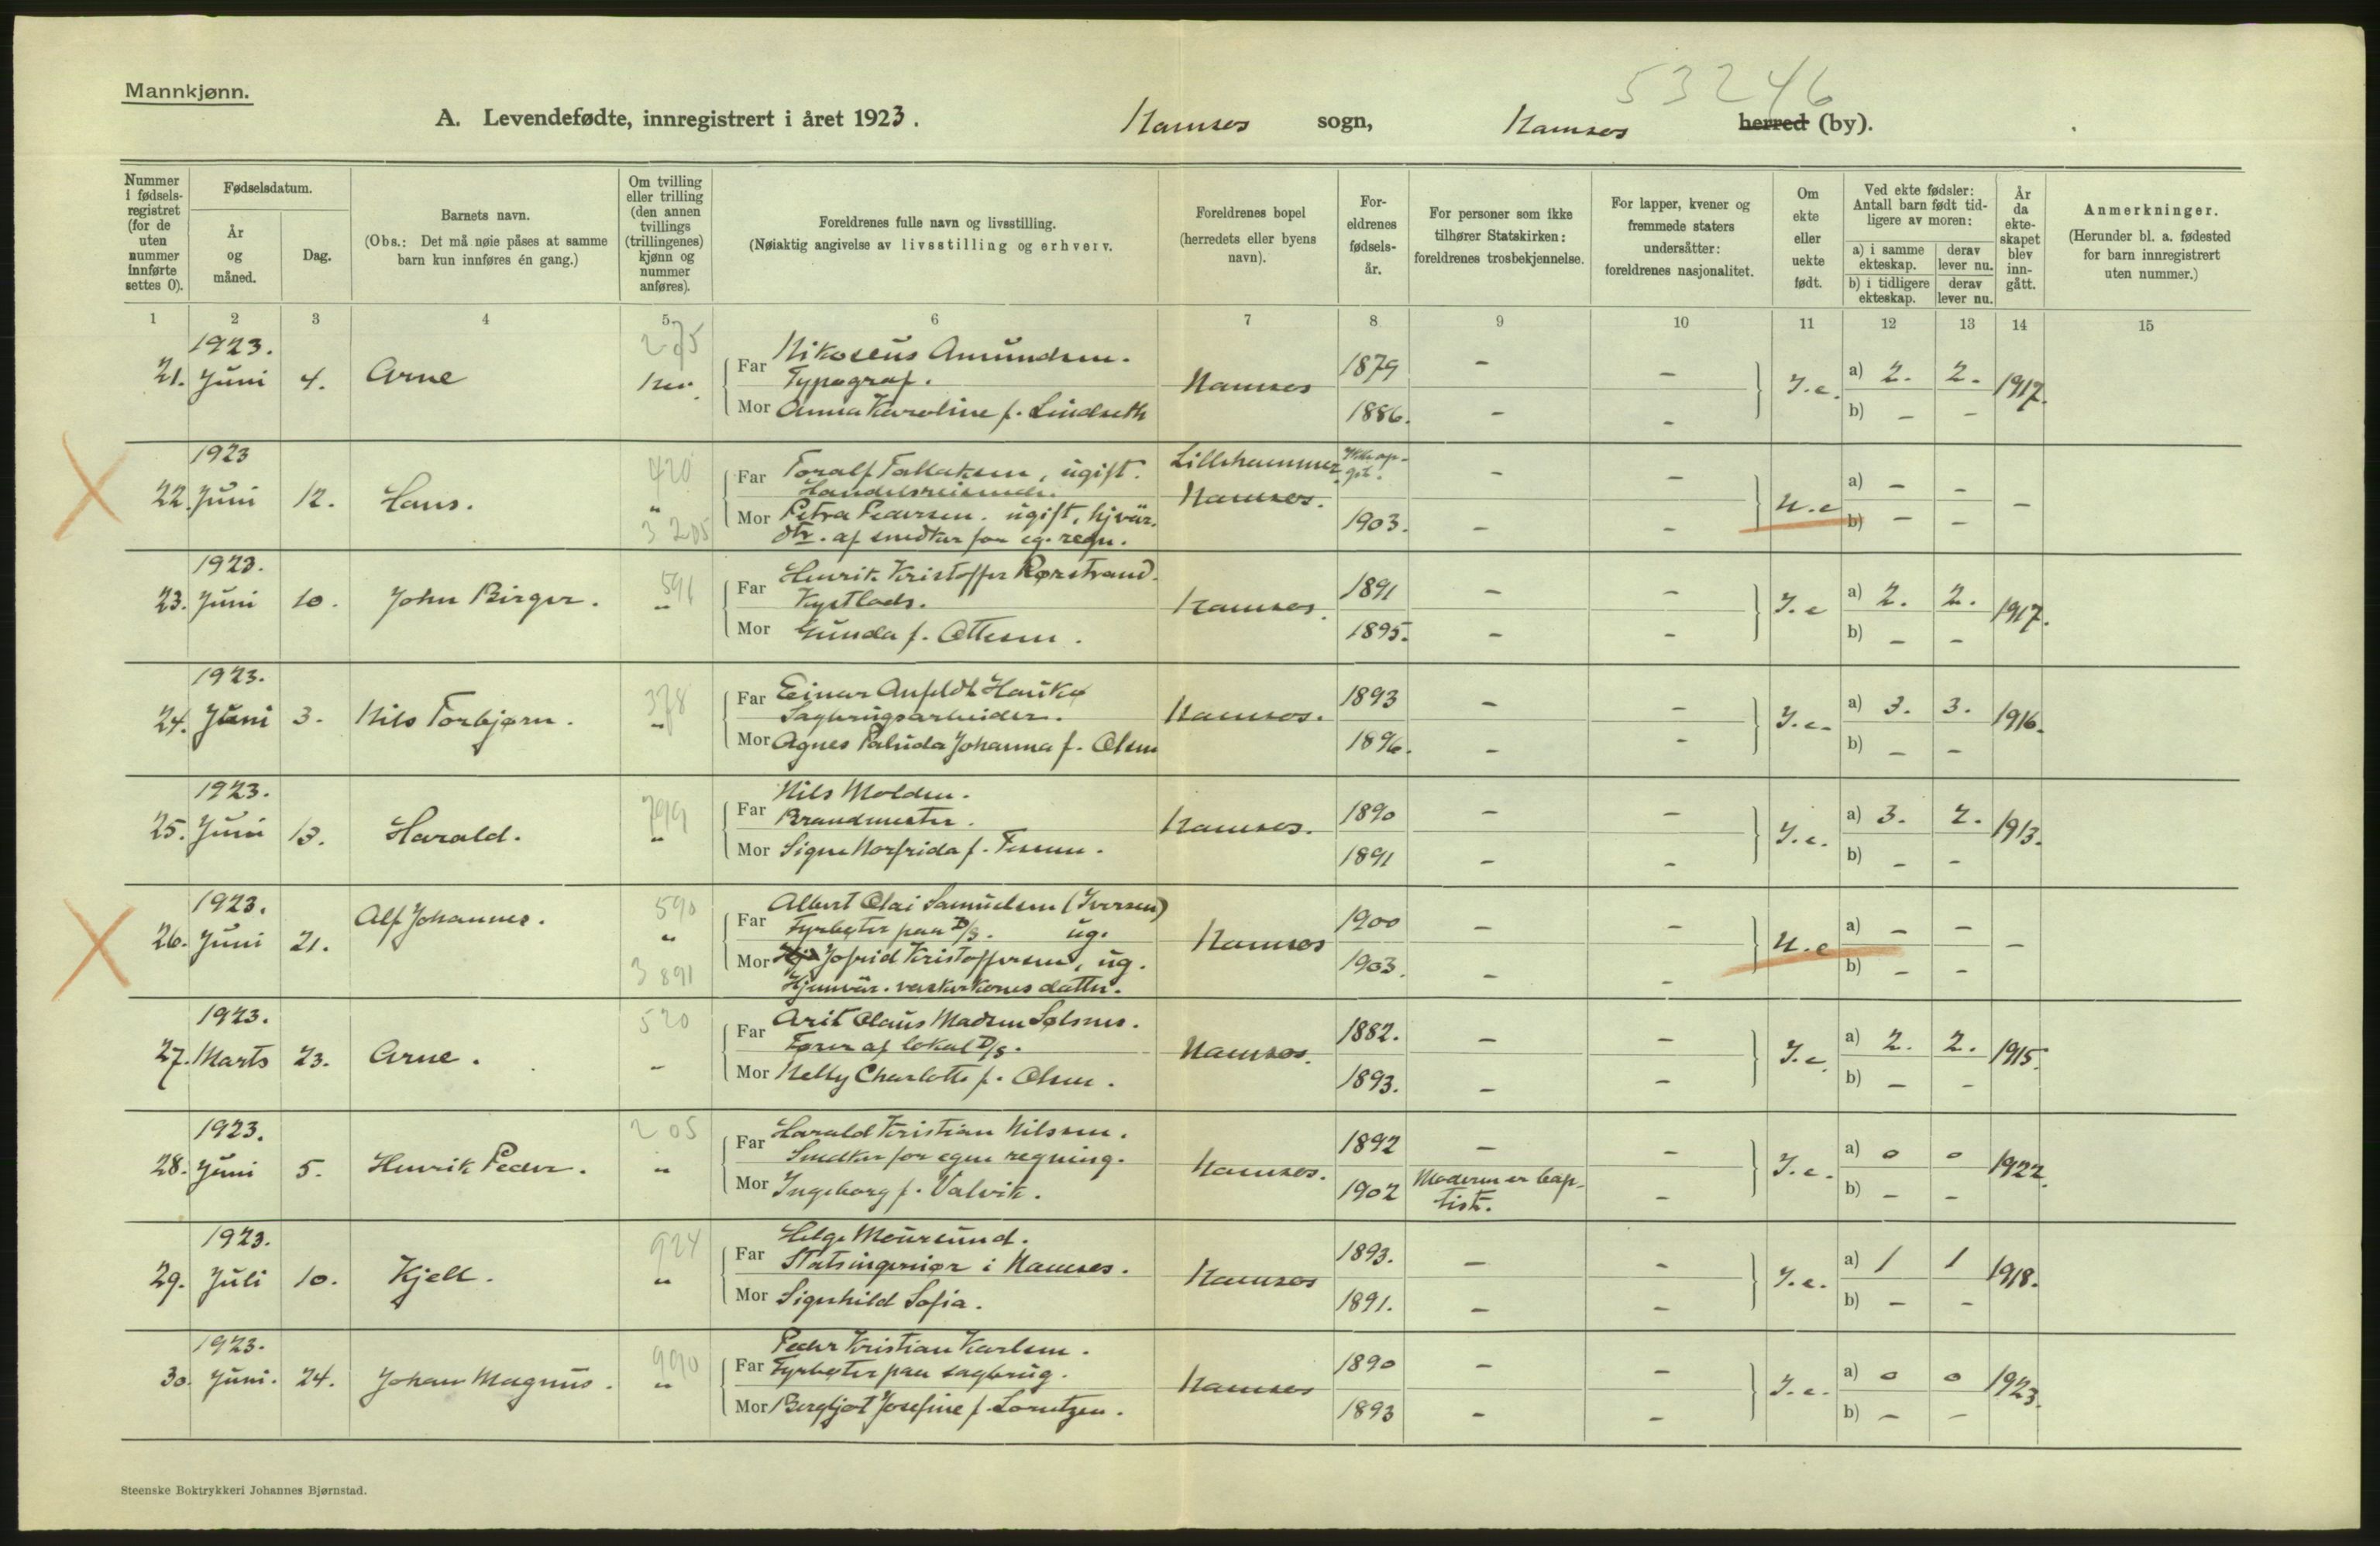 Mannkjønn.
53246
A. Levendefødte, innregistrert i året 1923. Namsos sogn, Namsos herred (by).
Nummer i fødsels-registret (for de uten nummer innførte settes 0).
Fødselsdatum.
År og måned.
Dag.
Barnets navn.
(Obs.: Det må nøie påses at samme barn kun innføres én gang.)
Om tvilling eller trilling (den annen tvillings (trillingenes) kjønn og nummer anføres).
Foreldrenes fulle navn og livsstilling.
(Nøiaktig angivelse av livsstilling og erhverv.
Foreldrenes bopel (herredets eller byens navn).
For-eldrenes fødsels-år.
For personer som ikke tilhører Statskirken: foreldrenes trosbekjennelse.
For lapper, kvener og fremmede staters undersåtter: foreldrenes nasjonalitet.
Om ekte eller uekte født.
Ved ekte fødsler: Antall barn født tid-ligere av moren:
a) i samme ekteskap. derav lever nu.
b) i tidligere ekteskap. derav lever nu.
År da ekte-skapet blev inn-gått.
Anmerkninger.
(Herunder bl. a. fødested for barn innregistrert uten nummer.)
1 2 3 4 5 6 7 8 9 10 11 12 13 14 15
1923. 275 Nikoleus Amundsen.
21. Juni 4. Arne Nei. Far Typograf. Namsos 1879 - - I.e. a) 2. 2. 1917.
Mor Anna Karoline f. Lindseth 1886. - - b) - -
1923 420 Far Toralf Tallaksen, ugift. Lillehammer. Ikke op-git. - -
22. Juni 12. Hans. " Handelsreisende. Namsos. U.e a) - - -
3 205 Mor Petra Pedersen. ugift, hjvær. 1903. - - b) - -
dtr. af smedker for eg. regn.
1923. 591 Henrik Kristoffer Rørstrand.
23. Juni 10. John Birger. " Far Kystlods. Namsos. 1891 - - I.e a) 2. 2. 1917.
Mor Gunda f. Ottesen. 1895. - - b) - -
1923. 378 Far Einar Anfeldt Hauke 1893
24. Juni 3. Nils Torbjørn. " Sagbrugsarbeider. Namsos. - - I.e. a) 3. 3. 1916.
Mor Agnes Palida Johanna f. Olsen 1896. - - b) - -
1923. 799 Nils Molden.
25. Juni 13. Harald. " Far Brandmester. Namsos. 1890 - - I.e. a) 3. 2. 1913.
Mor Signe Norfrida f. 1891 - - b) - -
1923. 590 Albert Olai Samuelsen (Iversen)
26. Juni 21. Alf Johannes. " Far Fyrbøter paa D/S. ug. Namsos 1900 - - U.e a) - - -
3 891 Mor Jofrid Kristoffersen, ug. 1903. - - b) - -
Hjemvær. vaskerkones datter.
1923. 520 Arit Olaus Madsen Solsnes.
27. Marts 23. Arne. - Far Fører af lokal D/S. Namsos. 1882. - - I.e. a) 2. 2. 1915.
Mor Nelly Charlotte f. Olsen. 1893. - - b) - -
1923. 205 Harald Kristian Nilssen.
28. Juni 5. Henrik Peder. " Far Smedker for egen regning. Namsos. 1892 - - I.e. a) 0 0 1922.
Mor Ingeborg f. Valvik. 1902 Moderen er bap-tist. - b) - -
1923. 924 Helge Moursund.
29. Juli 10. Kjell. " Far Statsingeniør i Namsos. Namsos 1893. - - I.e. a) 1 1 1918.
Mor Sigerhild Sofia. 1891. - - b) - -
1923. 990 Peder Kristian Karlsen.
30. Juni. 24. Johan Magnus. " Far Fyrbøter paa sagbrug. Namsos 1890 - - I.e. a) 0 0 1923.
Mor Bergljot Josefine f. Lorntzen. 1893 - - b) - -
Steenske Boktrykkeri Johannes Bjørnstad.